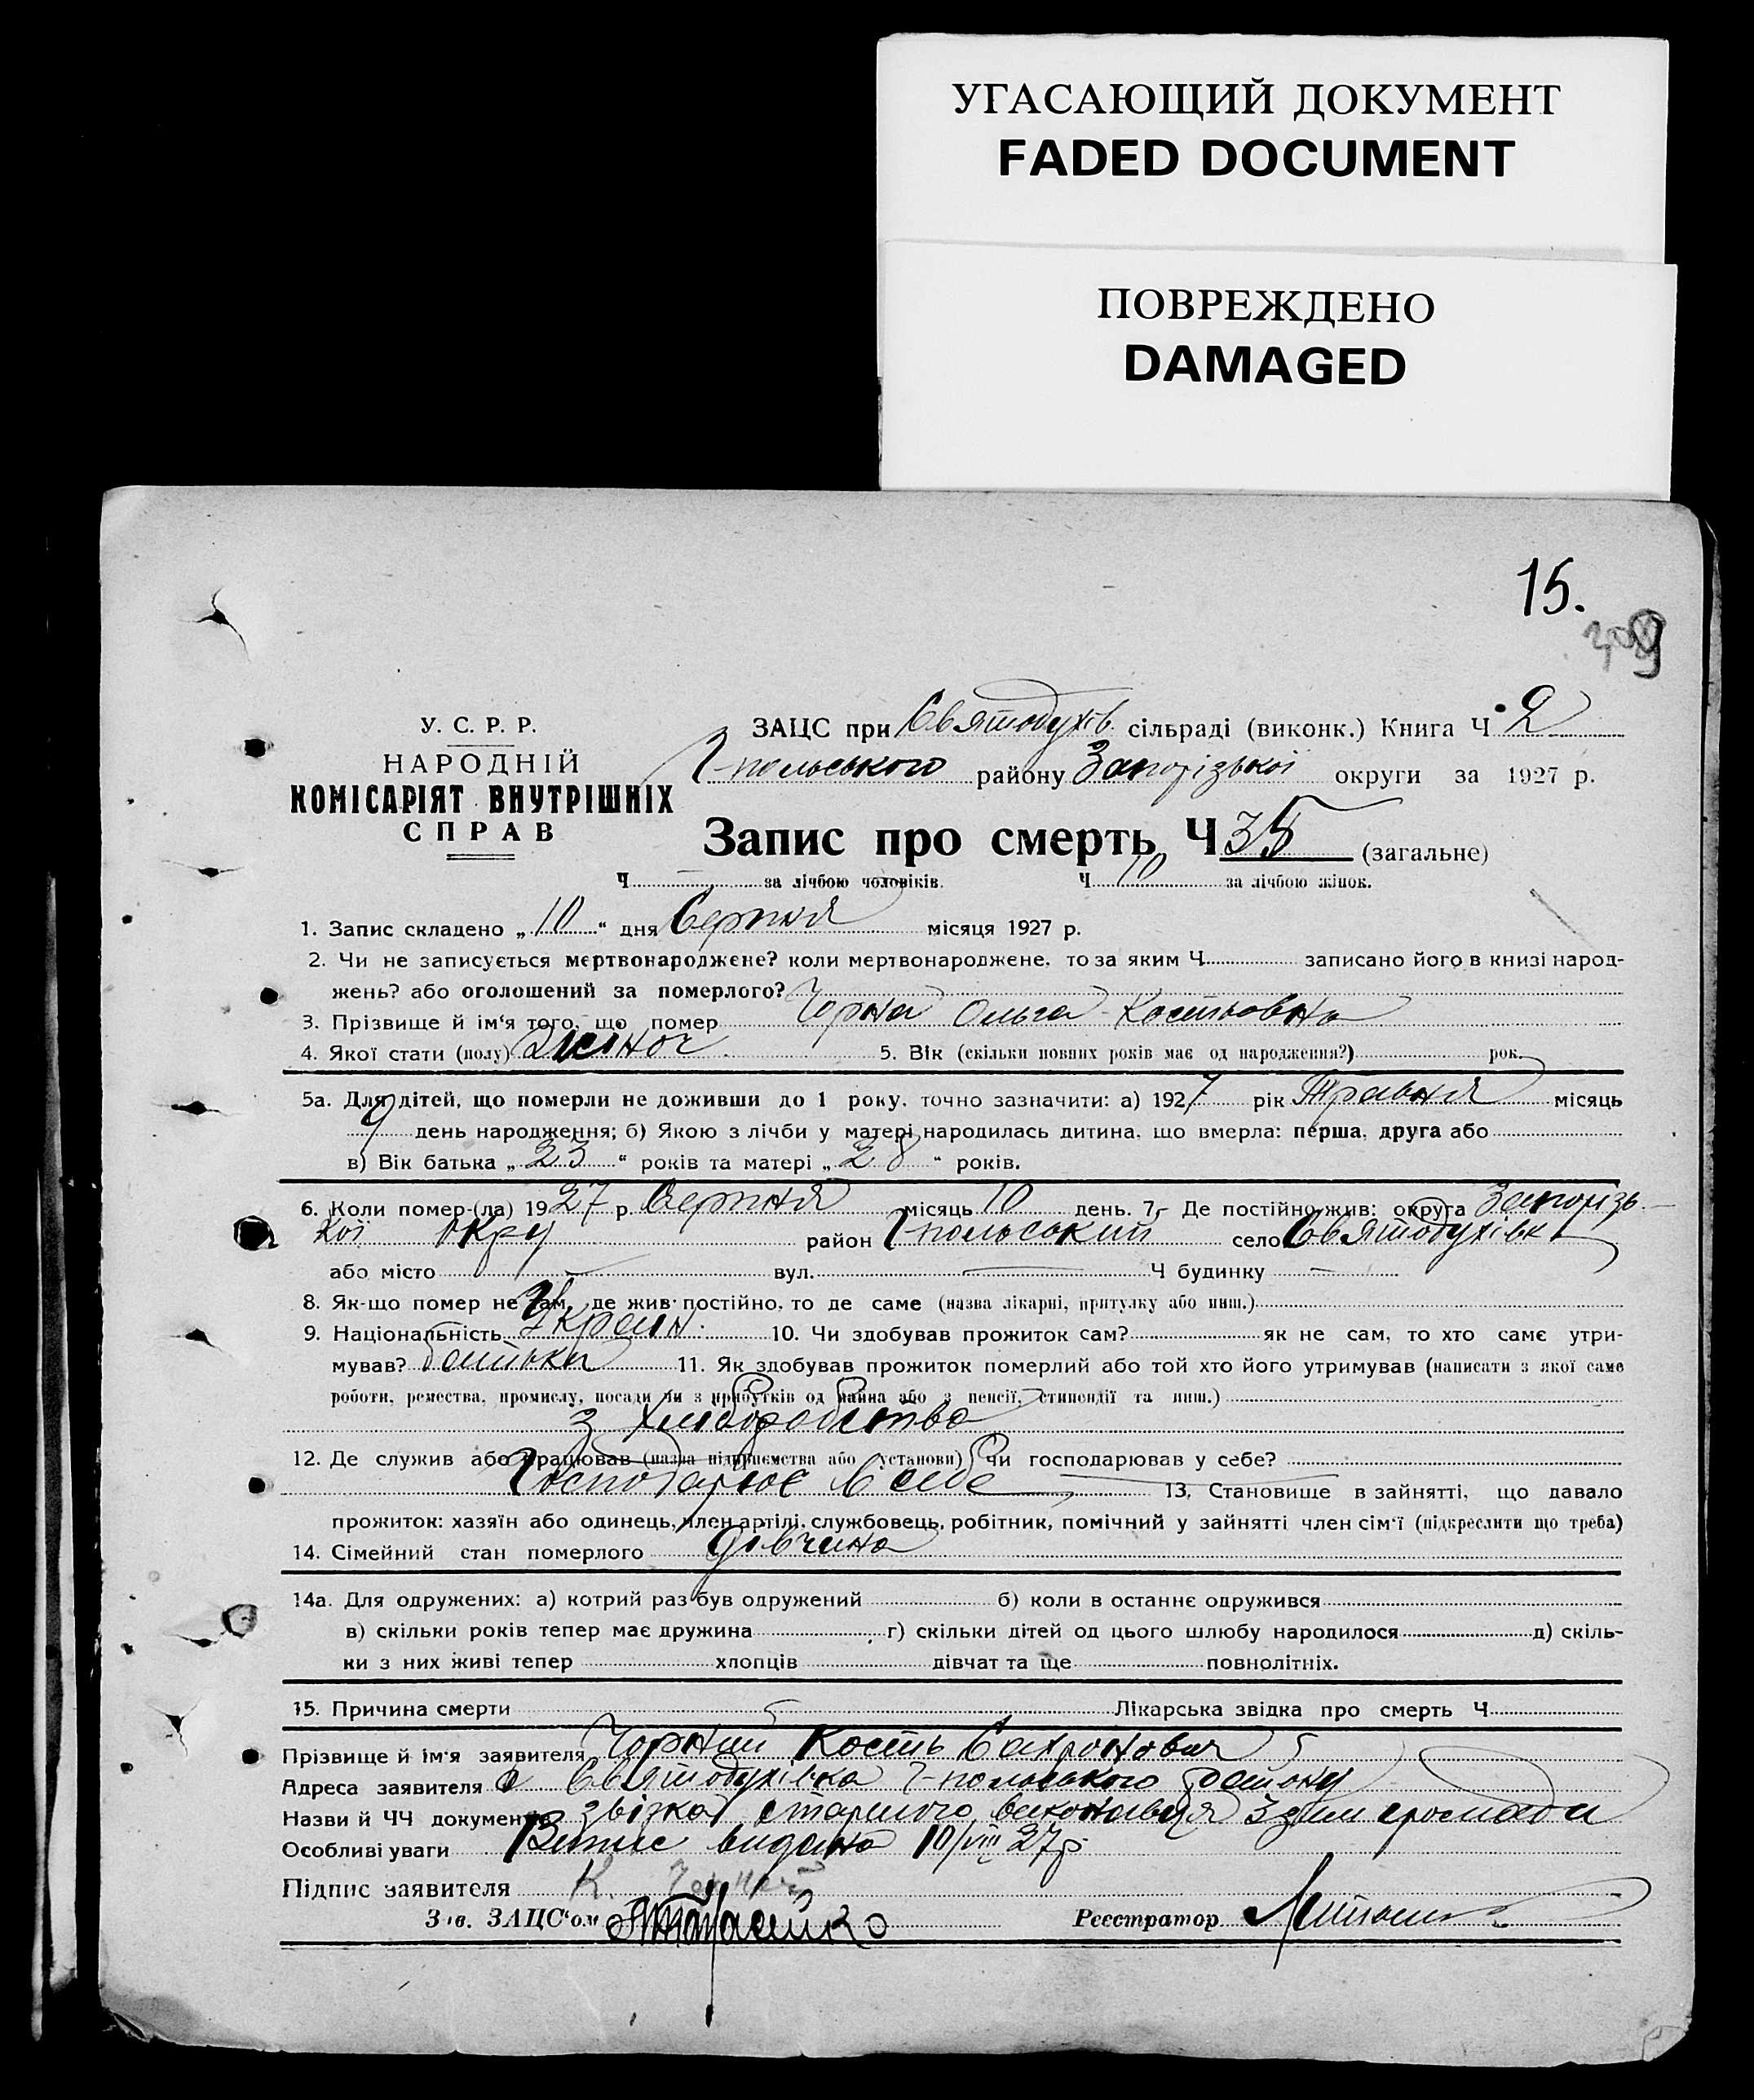 УГАСАЮЩИЙ ДОКУМЕНТ
FADED DOCUMENT
ПОВРЕЖДЕНО
DAMAGED
15.
У. С. Р. Р.
НАРОДНІЙ
КОМІСАРІЯТ ВНУТРІШНІХ
СПРАВ
ЗАЦС при Святодухів. сільраді (виконк.) Книга Ч 2
-польського району Запорізької округи за 1927 р.
Запис про смерть Ч 35 (загальне)
Ч — за лічбою чоловіків. Ч 10 за лічбою жінок.
1. Запис складено „ 10 “ дня Серпня місяця 1927 р.
2. Чи не записується мертвонароджене? коли мертвонароджене, то за яким Ч. записано його в книзі народ-
жень? або оголошений за померлого?
3. Прізвище й ім‘я того, що помер Чорна Ольга Костьовна
4. Якої стати (полу) Жіноч 5. Вік (скільки повних років має од народження?) рок.
5а. Для дітей, що померли не доживши до 1 року, точно зазначити: а) 1927 рік Травня місяць
9 день народження; б) Якою з лічби у матері народилась дитина, що вмерла: перша, друга або
в) Вік батька „ 23 “ років та матері „ 28 “ років.
6. Коли помер-(ла) 1927 р. Серпня місяць 10 день. 7. Де постійно жив: округа Запорізь-
кої окру район -польський село Святодухівк
або місто вул. — Ч будинку —
8. Як-що помер не там, де жив постійно, то де саме (назва лікарні, притулку або инш.)
9. Національність Україн. 10. Чи здобував прожиток сам? як не сам, то хто саме утри-
мував? батьки 11. Як здобував прожиток померлий або той хто його утримував (написати з якої саме
роботи, ремества, промислу, посади чи з прибутків од майна або з пенсії, стипендії та инш.)
з хліборобства
12. Де служив або працював (назва підприємства або установи) чи господарював у себе?
Господарює в себе 13. Становище в зайнятті, що давало
прожиток: хазяїн або одинець, член артілі, службовець, робітник, помічний у зайнятті член сім‘ї (підкреслити що треба)
14. Сімейний стан померлого дівчина
14а. Для одружених: а) котрий раз був одружений б) коли в останнє одружився
в) скільки років тепер має дружина г) скільки дітей од цього шлюбу народилося д) скіль-
ки з них живі тепер хлопців дівчат та ще повнолітніх.
15. Причина смерти Лікарська звідка про смерть Ч
Прізвище й ім‘я заявителя Чорний Кость Сахронович
Адреса заявителя с Святодухівка -польського району
Назви й ЧЧ документів звізка старшого виконавця громади
Особливі уваги Витис видано 10/VIII 27р
Підпис заявителя К. Чорний
Зав. ЗАЦС‘ом
Реєстратор